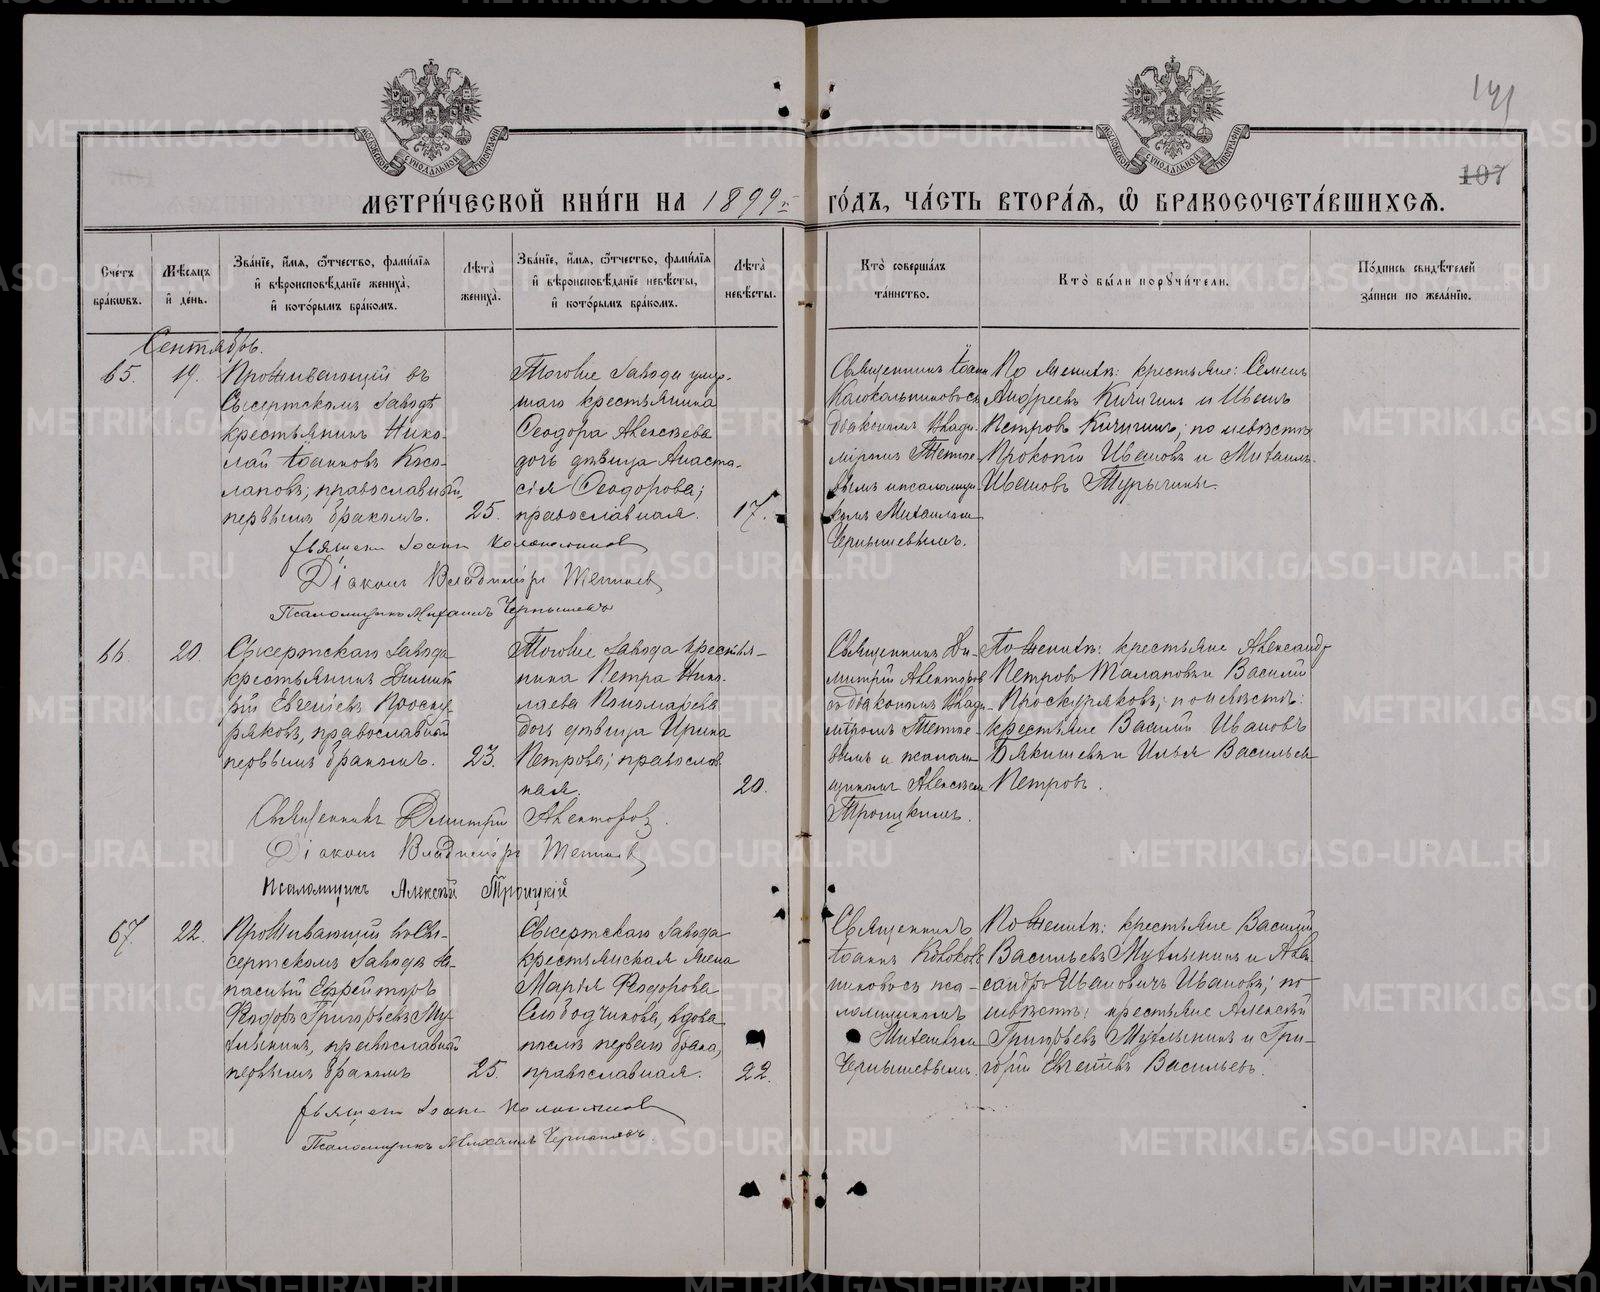 141
107
МЕТРИ́ЧЕСКОЙ КНИ́ГИ НА 1899 г. ГО́ДЪ, ЧА́СТЬ ВТОРА́Я, Ѽ БРАКОСОЧЕТА́ВШИХСЯ.
Сче́тъ бра́ковъ.
Мѣ́сяцъ и҆ де́нь.
Зва́нїе, и҆́мя, ѻ҆́тчество, фами́лїя и҆ вѣроисповѣ́данїе жениха̀, и҆ кото́рымъ бра́комъ.
Лѣта̀ жениха̀.
Зва́нїе, и҆́мя, ѻ҆́тчество, фами́лїя и҆ вѣроисповѣ́данїе невѣ́сты, и҆ кото́рымъ бра́комъ.
Лѣта̀ невѣ́сты.
Кто̀ соверша́лъ та́инство.
Кто̀ бы́ли порꙋчи́тели.
По́дпись свидѣ́телей за́писи по жела́нїю.
Сентябрь.
65.
19.
Проживающій въ
Сысертскомъ заводѣ
крестьянинъ Нико-
лай Іоанновъ Косо-
лаповъ; православный,
первымъ бракомъ.
25.
Тогоже завода умер-
шаго крестьянина
Ѳеодора Алексѣева
дочь дѣвица Анаста-
сія Ѳеодорова;
православная.
17.
Священникъ Іоаннъ
Колокольниковъ съ
діакономъ Влади-
міромъ Тетюе-
вымъ и псаломщи-
комъ Михаиломъ
Чернышевымъ.
По женихѣ: крестьяне: Семенъ
Андреевъ Кичигинъ и Иванъ
Петровъ Кичигинъ; по невѣстѣ
Прокопій Ивановъ и Михаилъ
Ивановъ Турыгины.
Священ. Іоаннъ Колокольников
Діаконъ Владиміръ Тетюев
Псаломщикъ Михаилъ Чернышевъ
66.
20.
Сысертскаго завода
крестьянинъ Димит
рій Евгеніевъ Проску
ряковъ, православный
первымъ бракомъ.
23.
Тогоже завода крестья-
нина Петра Нико-
лаева
дочь дѣвица Ирина
Петрова; православ
ная.
20.
Священникъ Ди-
митрій Авкторовъ
съ діакономъ Влади-
міромъ Тетюе-
вымъ и псалом-
щикомъ Алексѣемъ
Троицкимъ.
По женихѣ: крестьяне Александръ
Петровъ Талановъ и Василій
Проскуряковъ; по невѣстѣ:
крестьяне Василій Ивановъ
и Илья Васильевъ
Петровъ.
Священникъ Дмитрій Авкторовъ.
Діаконъ Владиміръ Тетюев
Псаломщикъ Алексѣй Троицкій
67.
22.
Проживающій въ Сы-
сертскомъ заводѣ за-
пасный Ефрейторъ
Ѳеодоръ Григорьевъ Му
хлынинъ, православный
первымъ бракомъ
25.
Сысертскаго завода
крестьянская жена
Марія Ѳеодорова
Слободчикова, вдова
послѣ перваго брака,
православная.
22.
Священникъ
Іоаннъ Колоколь-
никовъ съ пса-
ломщикомъ
Михаиломъ
Чернышевымъ.
По женихѣ: крестьяне Василій
Васильевъ Мухлынинъ и Алек
сандръ Ивановичъ Ивановъ; по
невѣстѣ: крестьяне Алексѣй
Григорьевъ Мухлынинъ и Гри-
горій Евгеніевъ Васильевъ.
Священ. Іоаннъ Колокольников
Псаломщикъ Михаилъ Чернышевъ.
METRIKI.GASO-URAL.RU